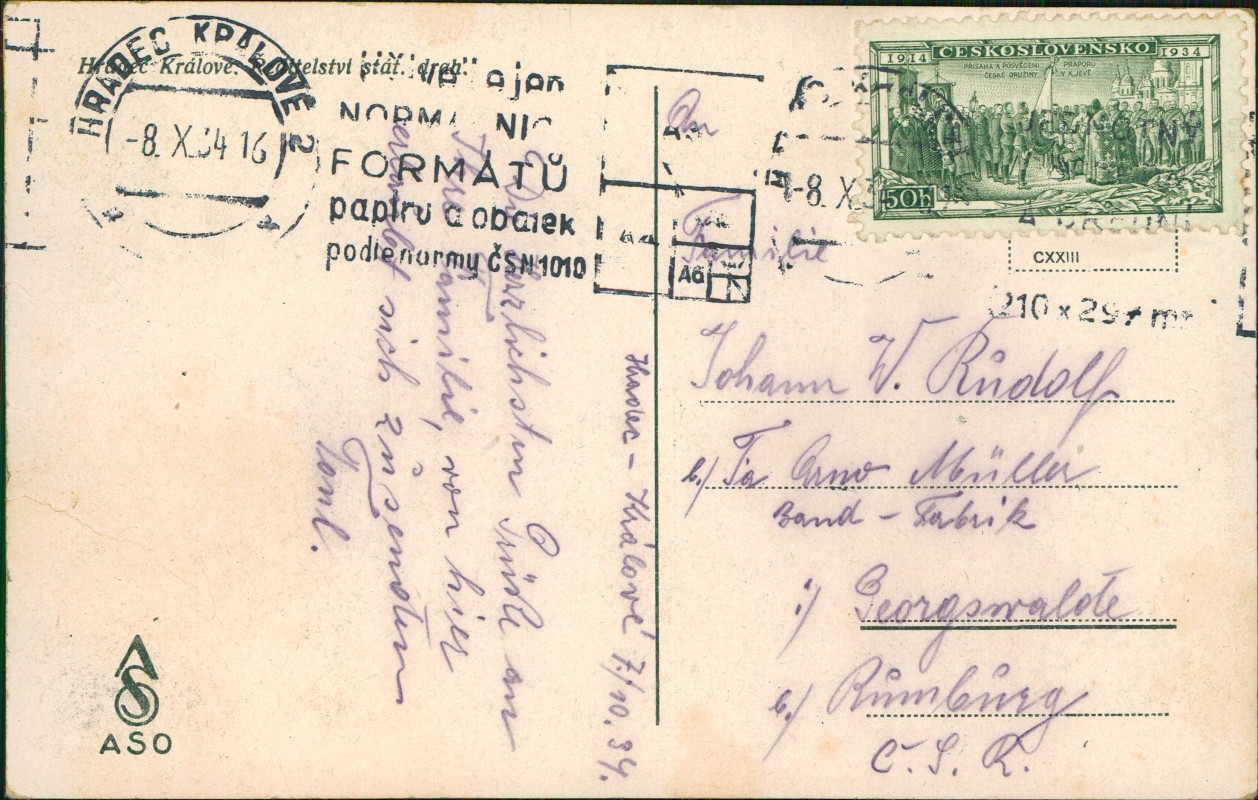 Hradec Králové. Ředitelství stát. drah.
HRADEC KRÁLOVÉ 2
-8. X. 34 16
NORMÁLNÍC
FORMÁTŮ
papíru a obálek
podle normy ČSN 1010
A4
A6
ČESKOSLOVENSKO
1914 1934
PŘÍSAHA A POSVĚCENÍ PRAPORU
ČESKÉ DRUŽINY V KJEVĚ
50h
-8. X. 34
CXXIII
210 x 297 mm
Hradec - Králové 7./10. 34.
Die herzlichsten Grüße an
Ihre Familie, von hier
erlaubt sich zu senden
Toni.
An
Familie
Johann W. Rudolf
b./ Fa Arno Müller
Band - Fabrik
:/ Georgswalde
b./ Rumburg
Č. S. R.
ASO